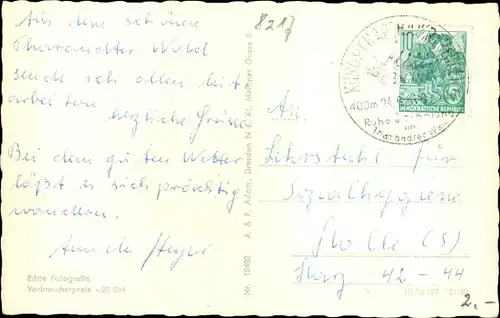 Aus dem schönen
Tharandter Wald
sende ich allen Mit
arbeitern
herzliche Grüsse
Bei dem guten Wetter
läßt es sich prächtig
wandern.
8217
Echte Fotografie
Verbraucherpreis -,20 DM
Nr. 12493 A. & P. Adam, Dresden N 6, Kl. Meißner Gasse 5
10
DEUTSCHE
DEMOKRATISCHE REPUBLIK
KURORT HARTHA
400m
Ruhe
im
Tharandter Wald
An
Lehrstuhl für
Sozialhygiene
Halle (S)
Harz 42-44
2.-